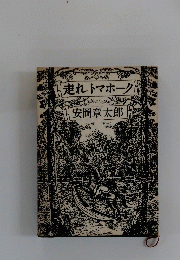 走れトマホーク
安岡章太郎